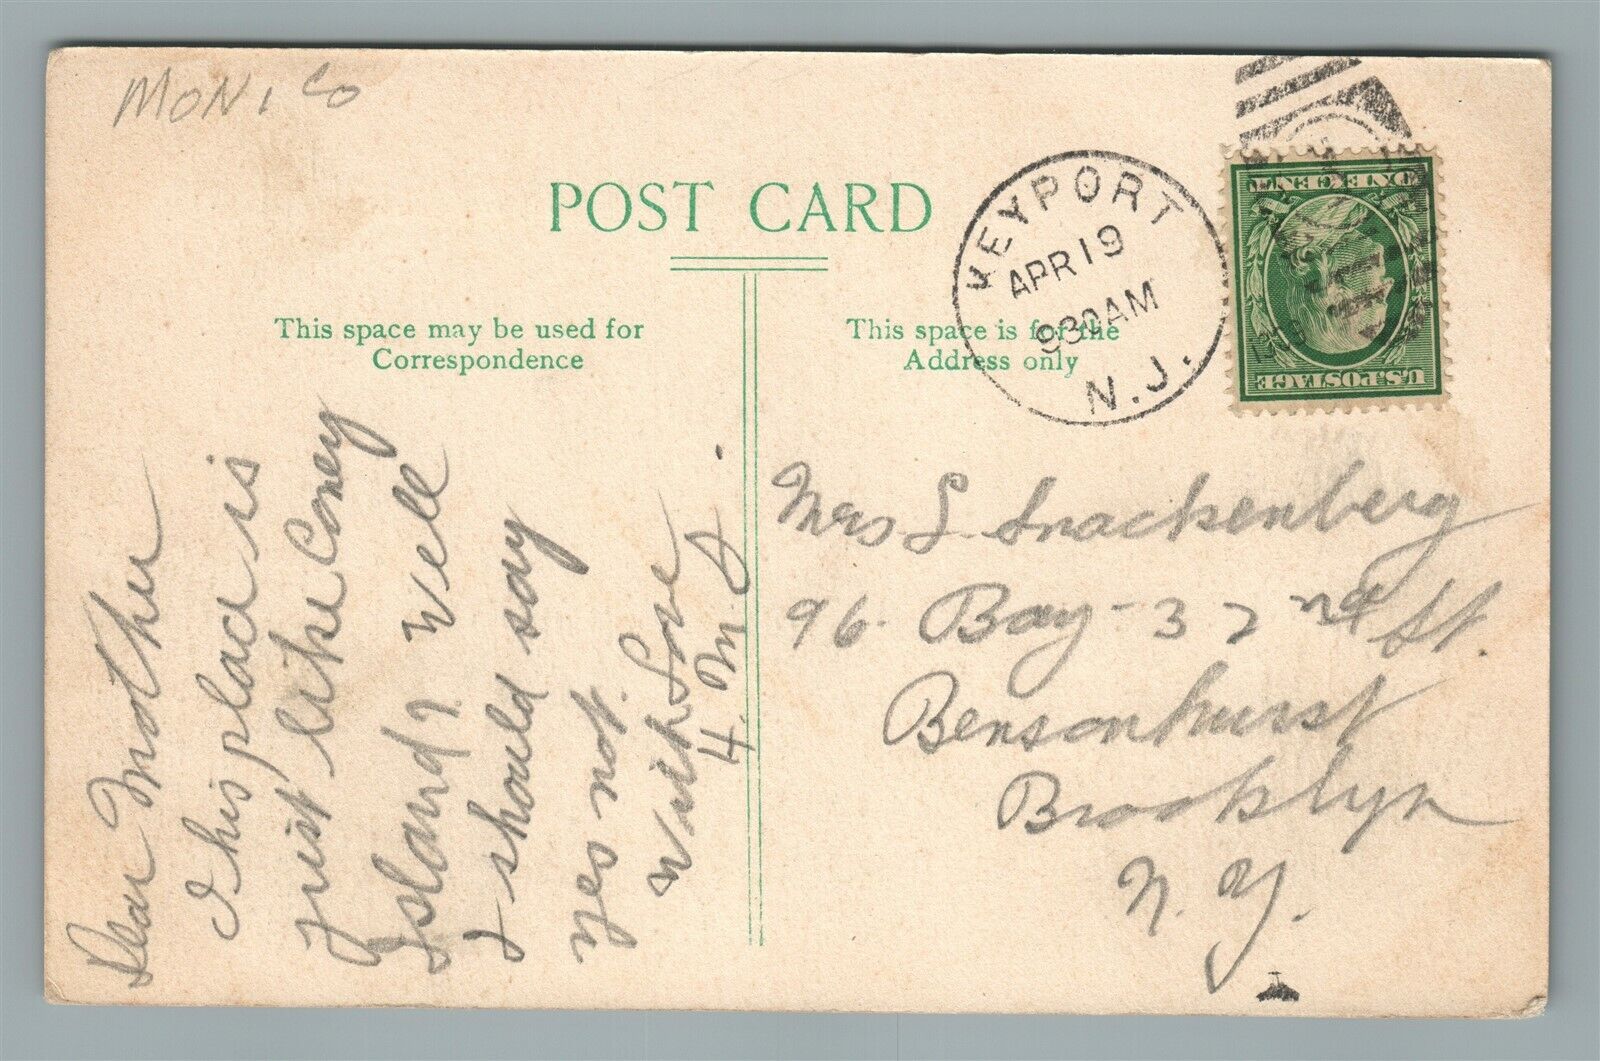 MON. CO
POST CARD
This space may be used for
Correspondence
This space is for the
Address only
KEYPORT
APR 19
930AM
N.J.
1909
ONE CENT
U.S.POSTAGE
Dear Mother
This place is
just like Coney
Island? Well
I should say
yes not.
With Love
H. M. S.
Mrs L. Snackenberg
96 Bay-32nd St.
Bensonhurst
Brooklyn
N. Y.